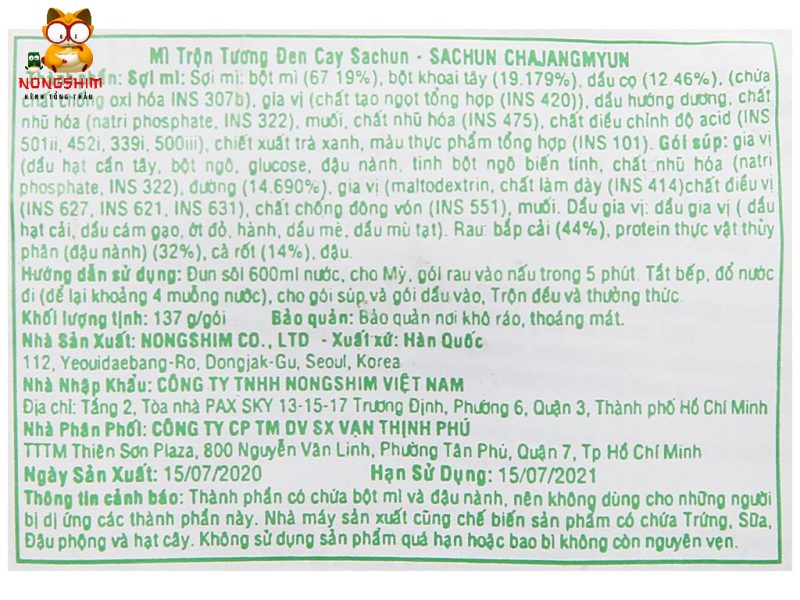 NONGSHIM
Mì Trộn Tương Đen Cay Sachun - SACHUN CHAJANGMYUN
phần: Sợi mì: Sợi mì: bột mì (67.19%), bột khoai tây (19.179%), dầu cọ (12.46%), (chứa
chất chống oxi hóa INS 307b), gia vị (chất tạo ngọt tổng hợp (INS 420)), dầu hướng dương, chất
nhũ hóa (natri phosphate, INS 322), muối, chất nhũ hóa (INS 475), chất điều chỉnh độ acid (INS
501ii, 452i, 339i, 500iii), chiết xuất trà xanh, màu thực phẩm tổng hợp (INS 101). Gói súp: gia vị
(dầu hạt cần tây, bột ngô, glucose, đậu nành, tinh bột ngô biến tính, chất nhũ hóa (natri
phosphate, INS 322), đường (14.690%), gia vị (maltodextrin, chất làm dày (INS 414)chất điều vị
(INS 627, INS 621, INS 631), chất chống đông vón (INS 551), muối. Dầu gia vị: dầu gia vị ( dầu
hạt cải, dầu cám gạo, ớt đỏ, hành, dầu mè, dầu mù tạt). Rau: bắp cải (44%), protein thực vật thủy
phân (đậu nành) (32%), cà rốt (14%), đậu.
Hướng dẫn sử dụng: Đun sôi 600ml nước, cho Mỳ, gói rau vào nấu trong 5 phút. Tắt bếp, đổ nước
đi (để lại khoảng 4 muỗng nước), cho gói súp và gói dầu vào, Trộn đều và thưởng thức.
Khối lượng tịnh: 137 g/gói Bảo quản: Bảo quản nơi khô ráo, thoáng mát.
Nhà Sản Xuất: NONGSHIM CO., LTD - Xuất xứ: Hàn Quốc
112, Yeouidaebang-Ro, Dongjak-Gu, Seoul, Korea
Nhà Nhập Khẩu: CÔNG TY TNHH NONGSHIM VIỆT NAM
Địa chỉ: Tầng 2, Tòa nhà PAX SKY 13-15-17 Trương Định, Phường 6, Quận 3, Thành phố Hồ Chí Minh
Nhà Phân Phối: CÔNG TY CP TM DV SX VẠN THỊNH PHÚ
TTTM Thiên Sơn Plaza, 800 Nguyễn Văn Linh, Phường Tân Phú, Quận 7, Tp Hồ Chí Minh
Ngày Sản Xuất: 15/07/2020 Hạn Sử Dụng: 15/07/2021
Thông tin cảnh báo: Thành phần có chứa bột mì và đậu nành, nên không dùng cho những người
bị dị ứng các thành phần này. Nhà máy sản xuất cũng chế biến sản phẩm có chứa Trứng, Sữa,
Đậu phộng và hạt cây. Không sử dụng sản phẩm quá hạn hoặc bao bì không còn nguyên vẹn.